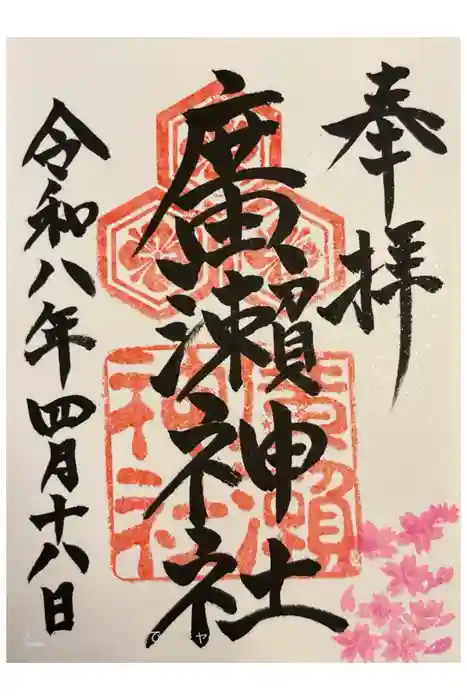 奉拝
廣瀬神社
廣瀬神社
令和八年四月十八日